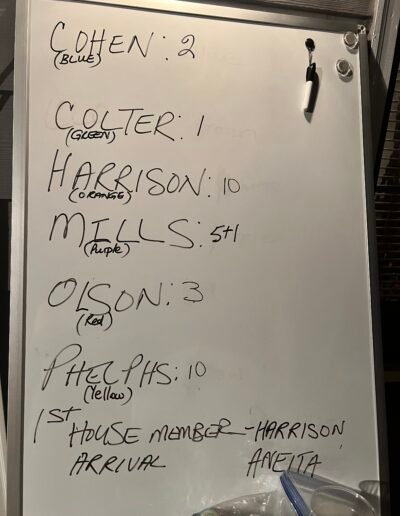 COHEN: 2
(BLUE)
COLTER: 1
(GREEN)
HARRISON: 10
(ORANGE)
MILLS: 5+1
(Purple)
OLSON: 3
(Red)
PHELPHS: 10
(Yellow)
1ST HOUSE MEMBER - HARRISON,
ARRIVAL ANEITA